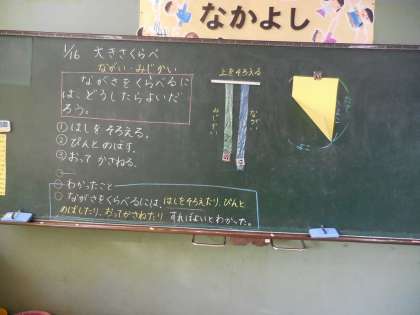 なかよし
1/16 大きさくらべ
ながい・みじかい
ながさをくらべるに
は、どうしたらよいだ
ろう。
① はしをそろえる。
② ぴんとのばす。
③ おってかさねる。
わかったこと
ながさをくらべるには、はしをそろえたり、ぴんと
のばしたり、おってかさねたりすればよいとわかった。
上をそろえる
みじかい
ながい